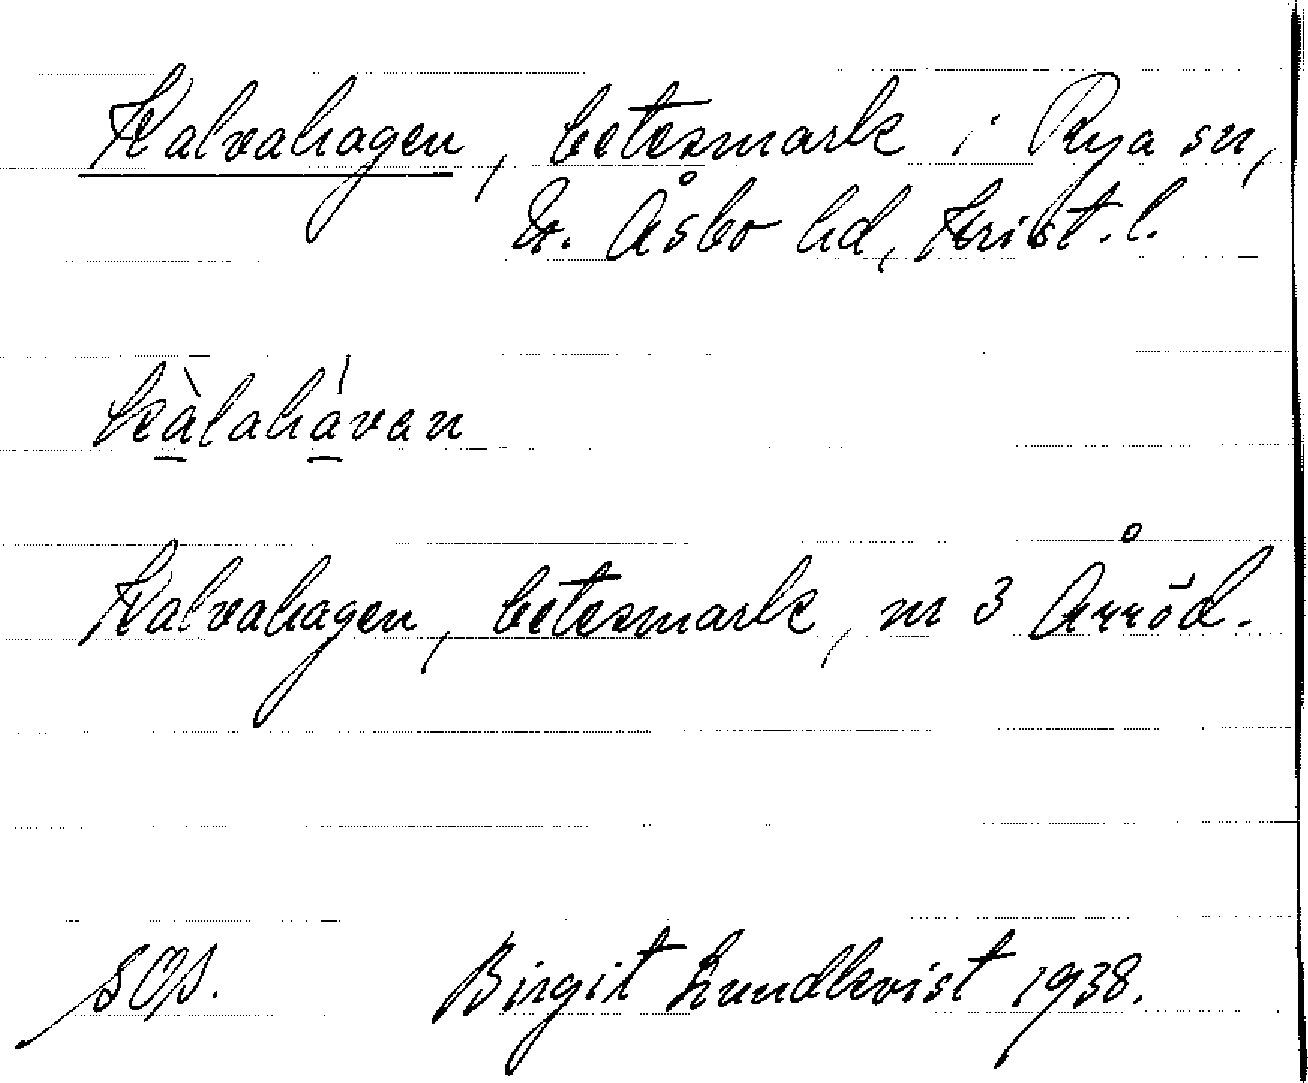 Kalvahagen, betesmark i Rya sn,
N. Åsbo hd, Krist. l.
kàlahávan
Kalvahagen, betesmark, nr 3 Årröd.
SOA.
Birgit Lundkvist 1938.